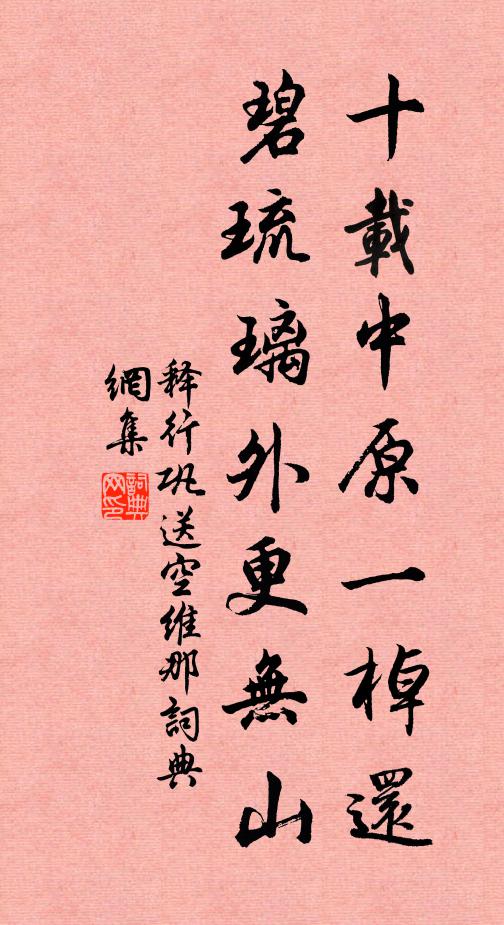 十載中原一棹還
碧琉璃外更無山
释行巩送空維那詞典
網集
詞典
网印